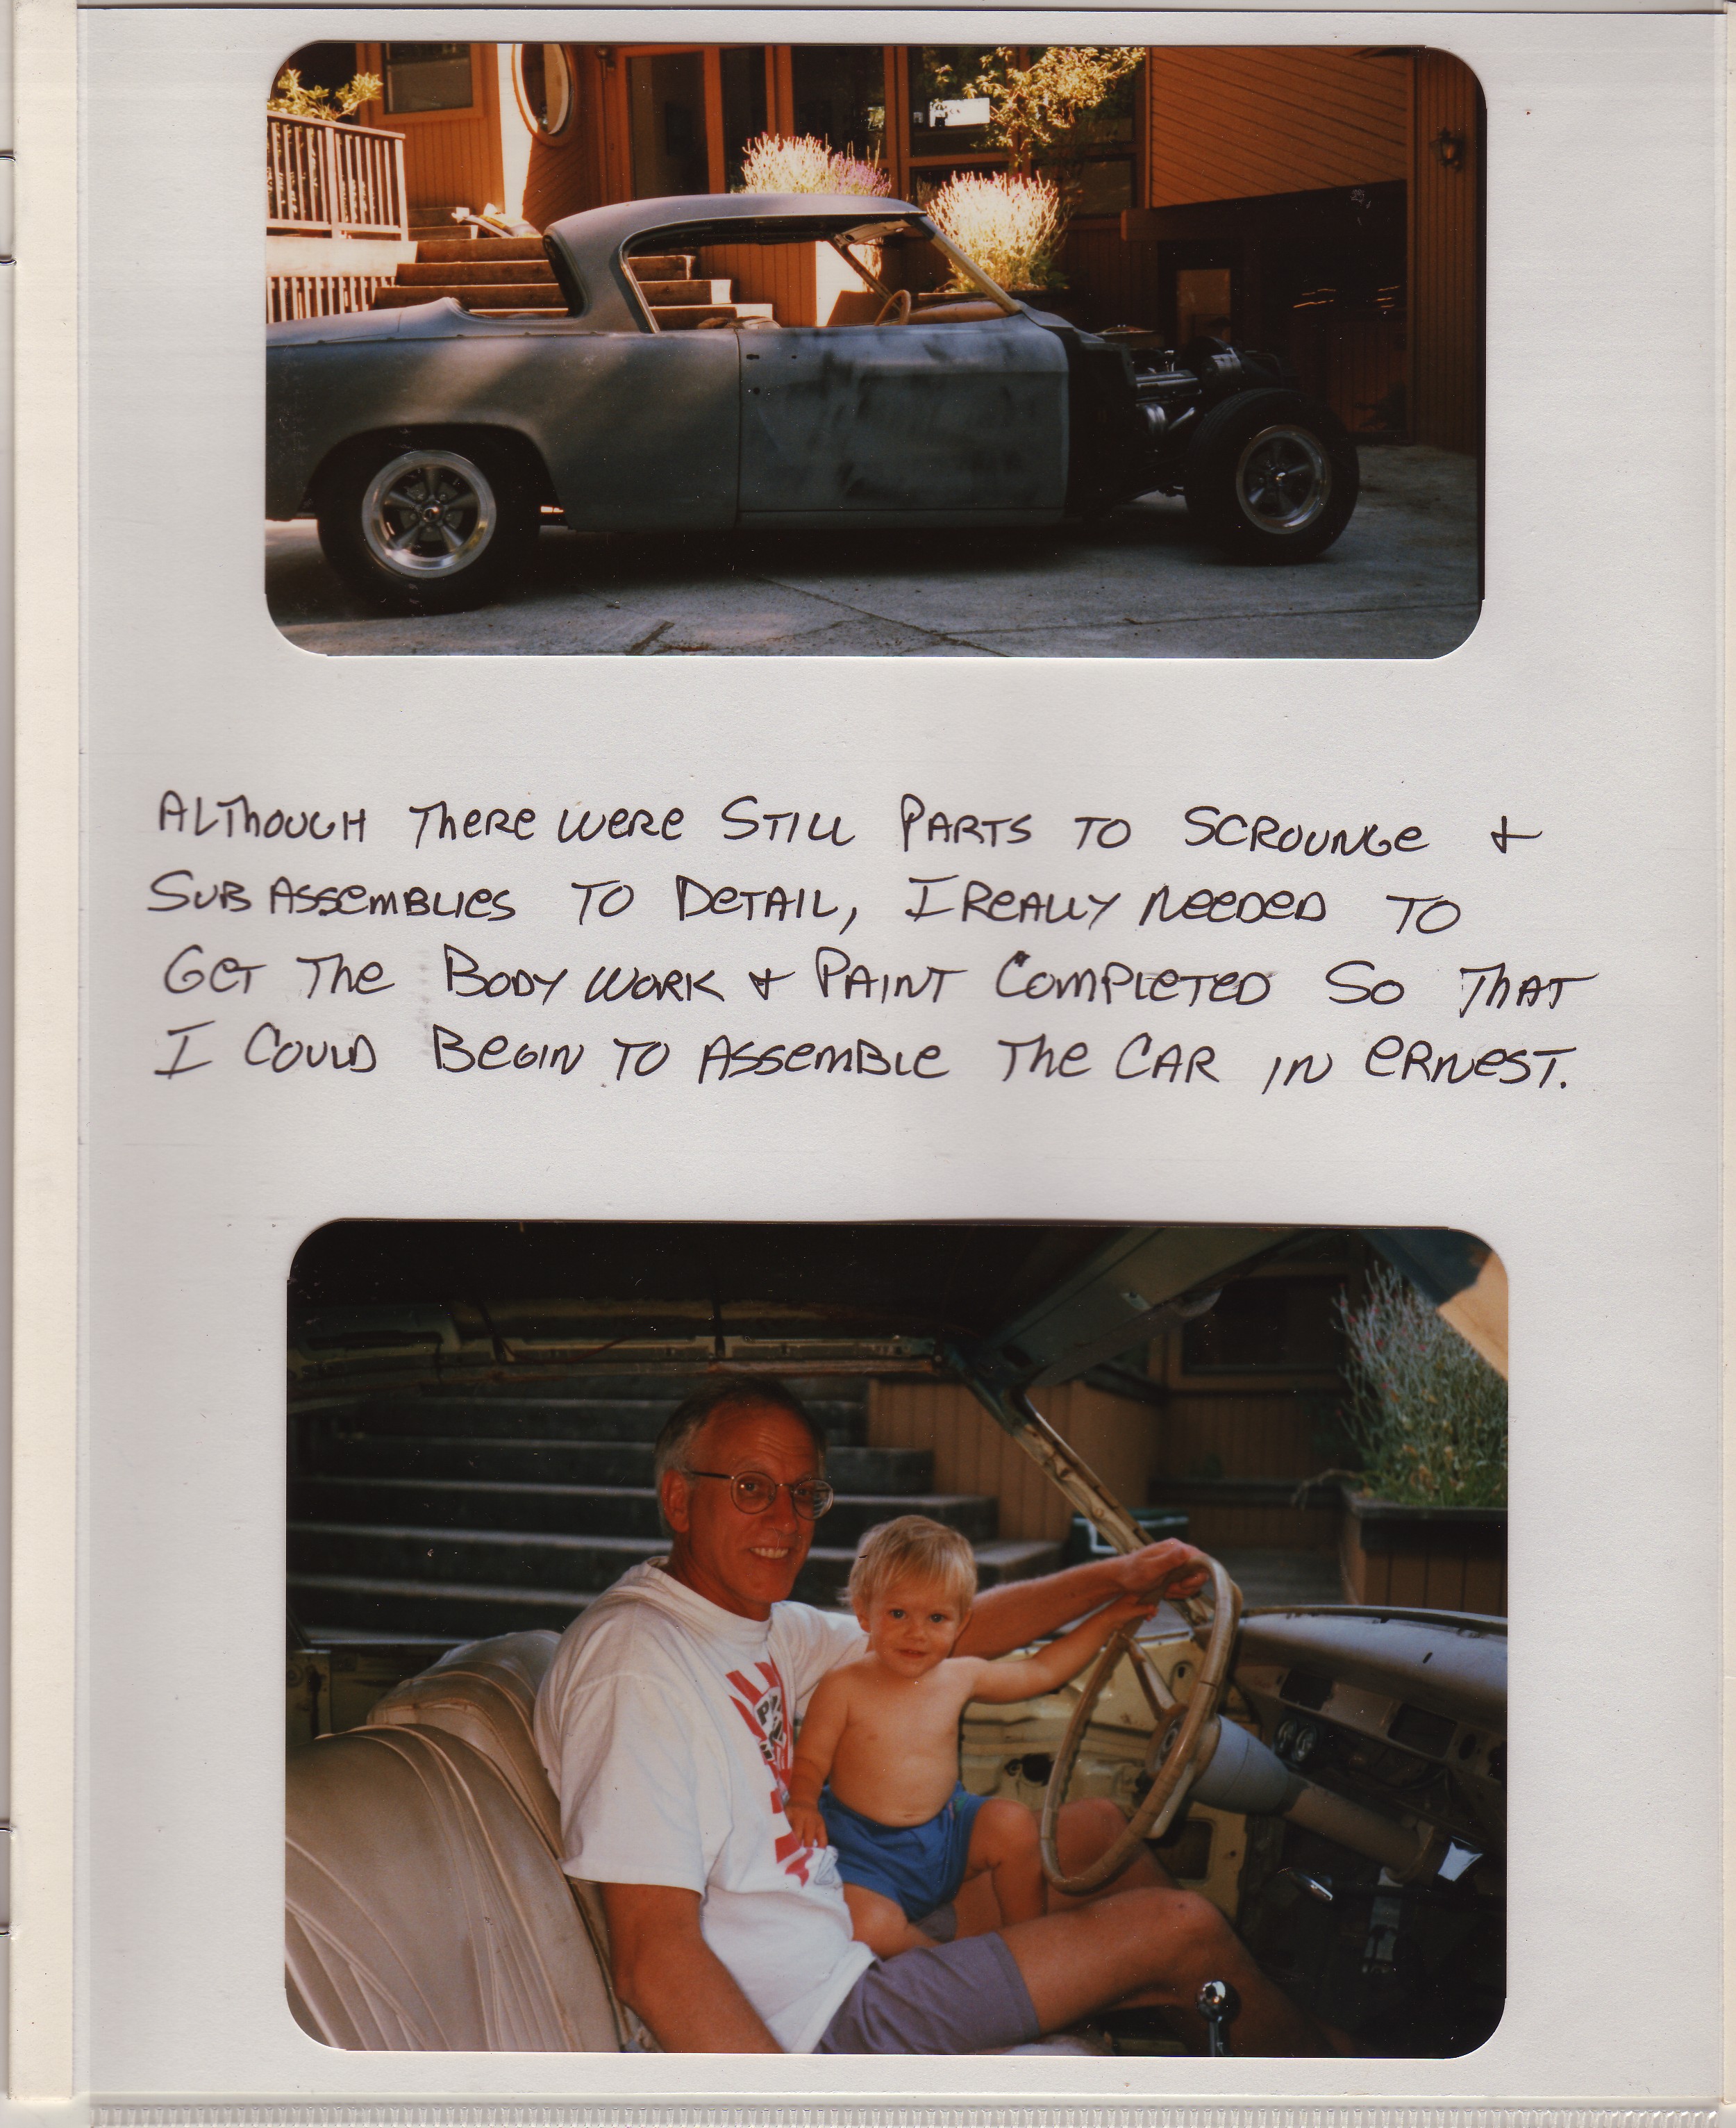 ALTHOUGH THERE WERE STILL PARTS TO SCROUNGE &
SUB ASSEMBLIES TO DETAIL, I REALLY NEEDED TO
GET THE BODY WORK & PAINT COMPLETED SO THAT
I COULD BEGIN TO ASSEMBLE THE CAR IN ERNEST.